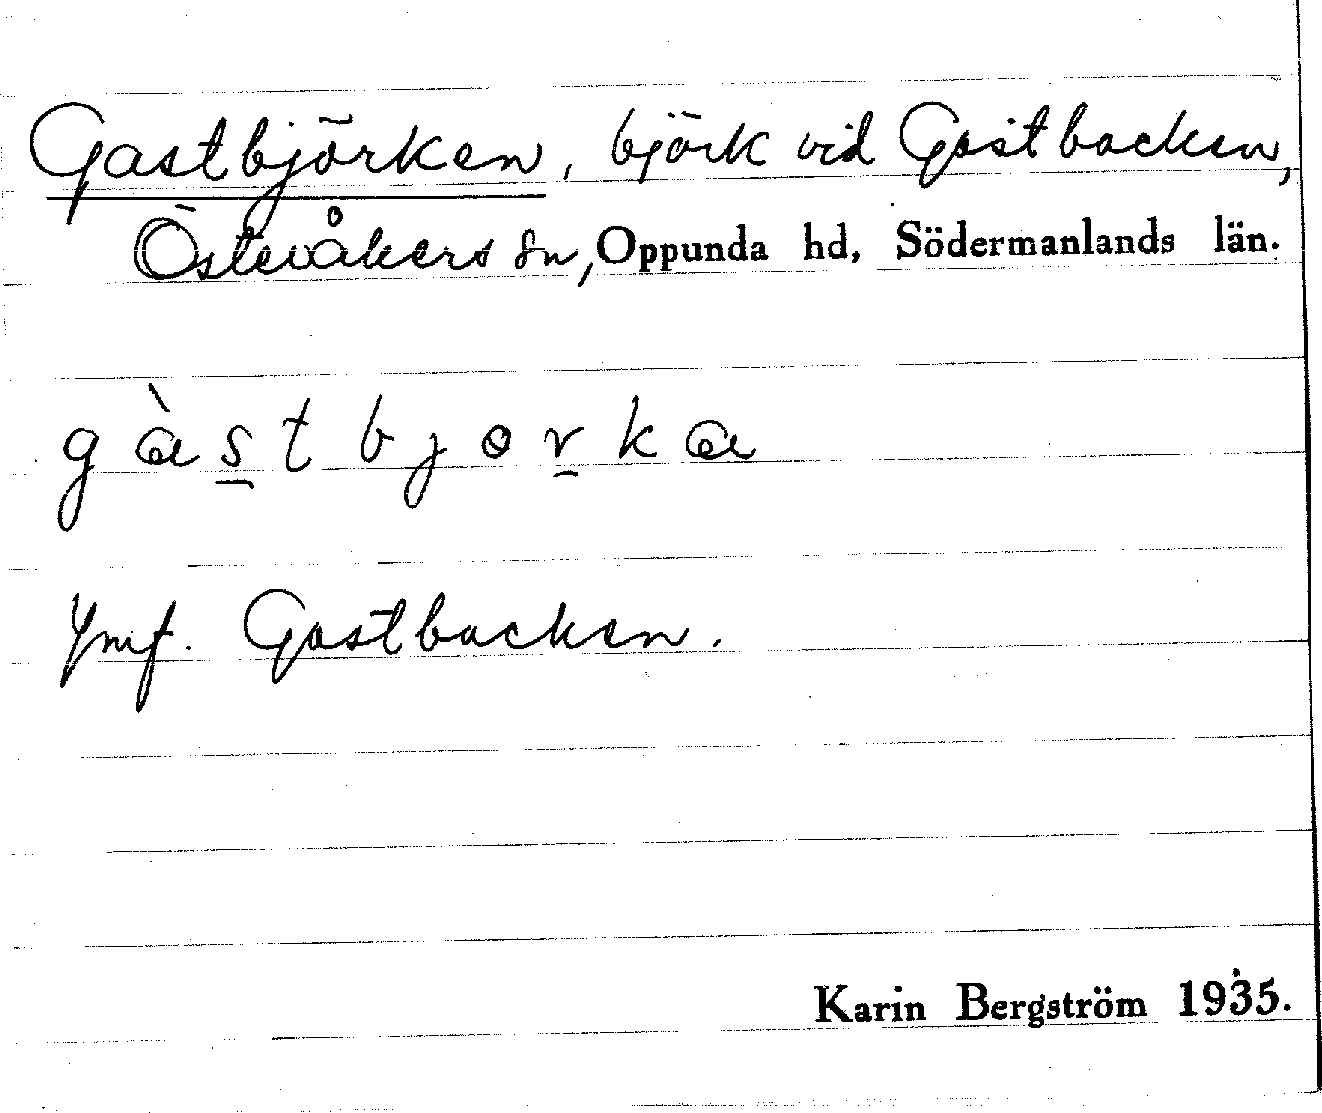 Gastbjörken, björk vid Gastbacken,
Österåkers sn, Oppunda hd, Södermanlands län.
gàstbjorka
Jmf. Gastbacken.
Karin Bergström 1935.